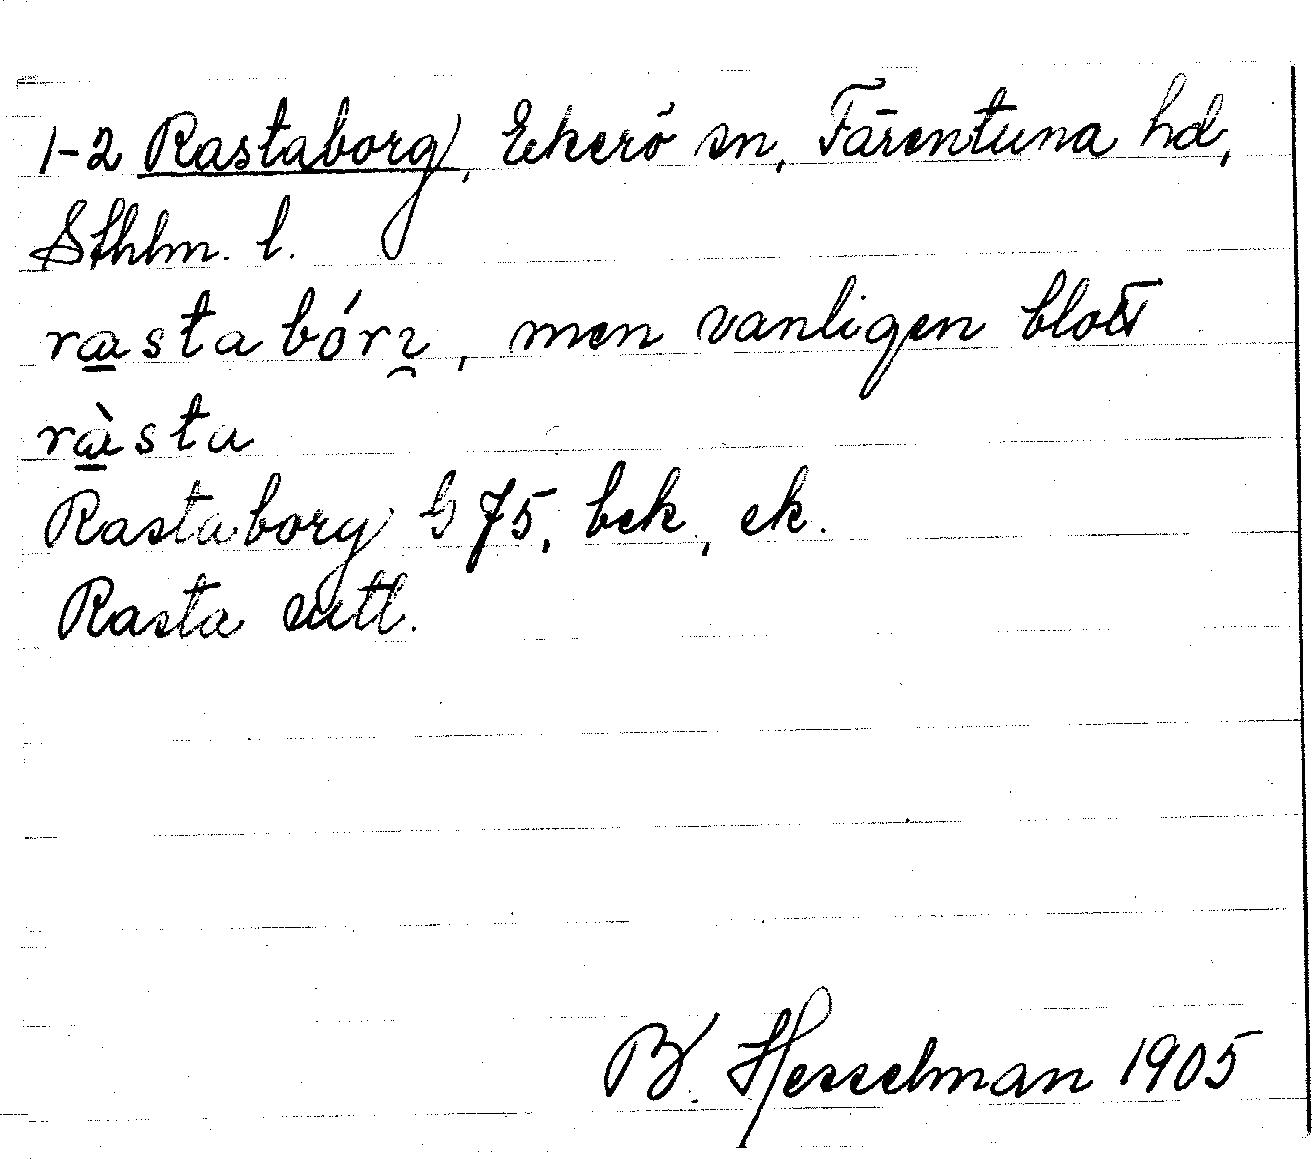 1-2 Rastaborg, Ekerö sn, Färentuna hd,
Sthlm. l.
rastabórı̯, men vanligen blott
ràsta
Rastaborg G 75, bek, ek.
Rasta uttl.
B. Hesselman 1905